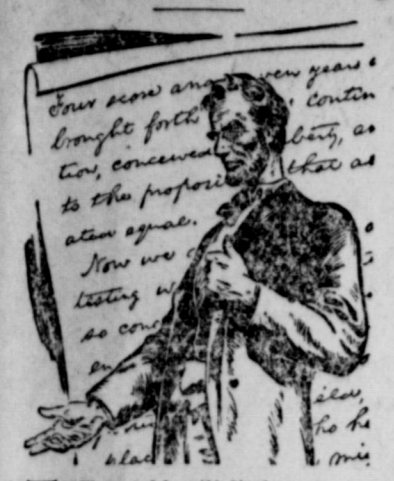 Four score and seven years a
brought forth contin
tion, conceived berty, an
to the proposi that as
ated equal.
Now we
testing w
so conc
en
eld,
ho he
plac mis